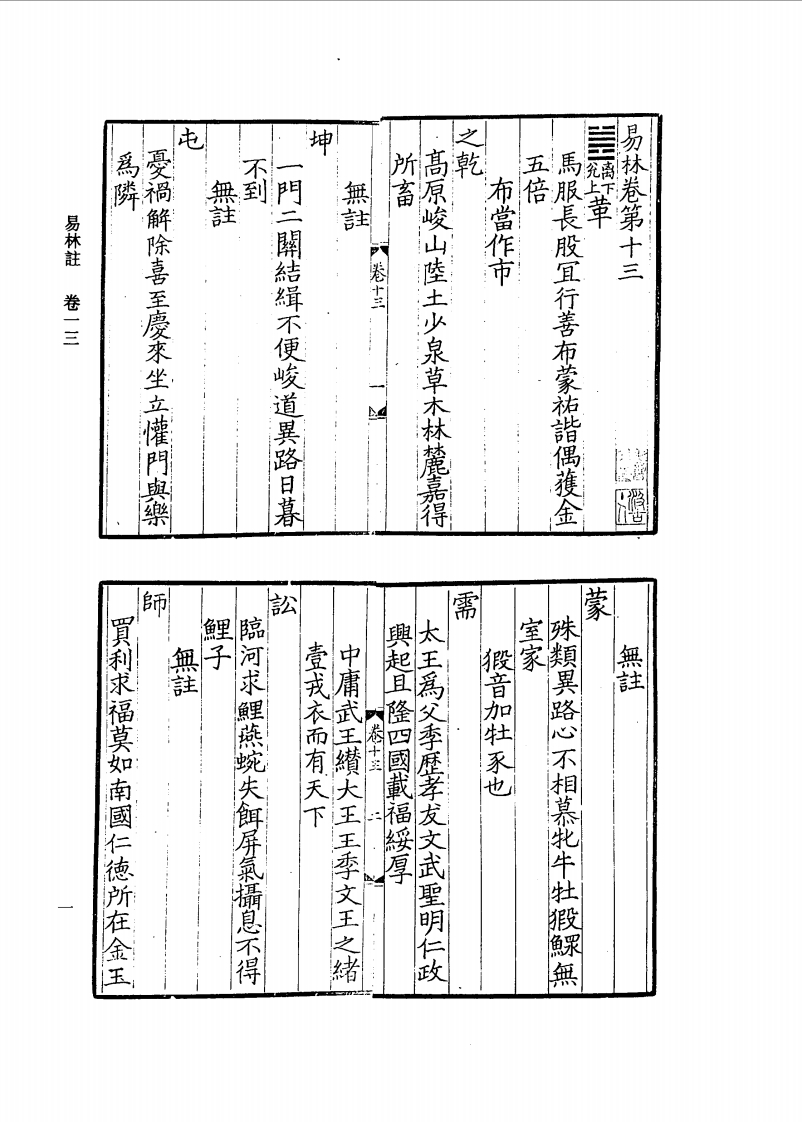 易林卷第十三
離下兌上革
馬服長股冝行善布蒙祐諧偶獲金
五倍
布當作市
之乾
髙原峻山陸土少泉草木林麓嘉得
所畜
無註
坤
一門二關結緝不便峻道異路日暮
不到
無註
屯
憂禍解除喜至慶來坐立懽門與樂
爲隣
卷十三
一
無註
蒙
殊類異路心不相慕牝牛牡猳鰥無
室家
猳音加牡豕也
需
太王爲父季歴孝友文武聖明仁政
興起且隆四國載福綏厚
中庸武王纘大王王季文王之緒
壹戎衣而有天下
訟
臨河求鯉燕婉失餌屏氣攝息不得
鯉子
無註
師
買利求福莫如南國仁德所在金玉
卷十三
二
易林註 卷一三
一